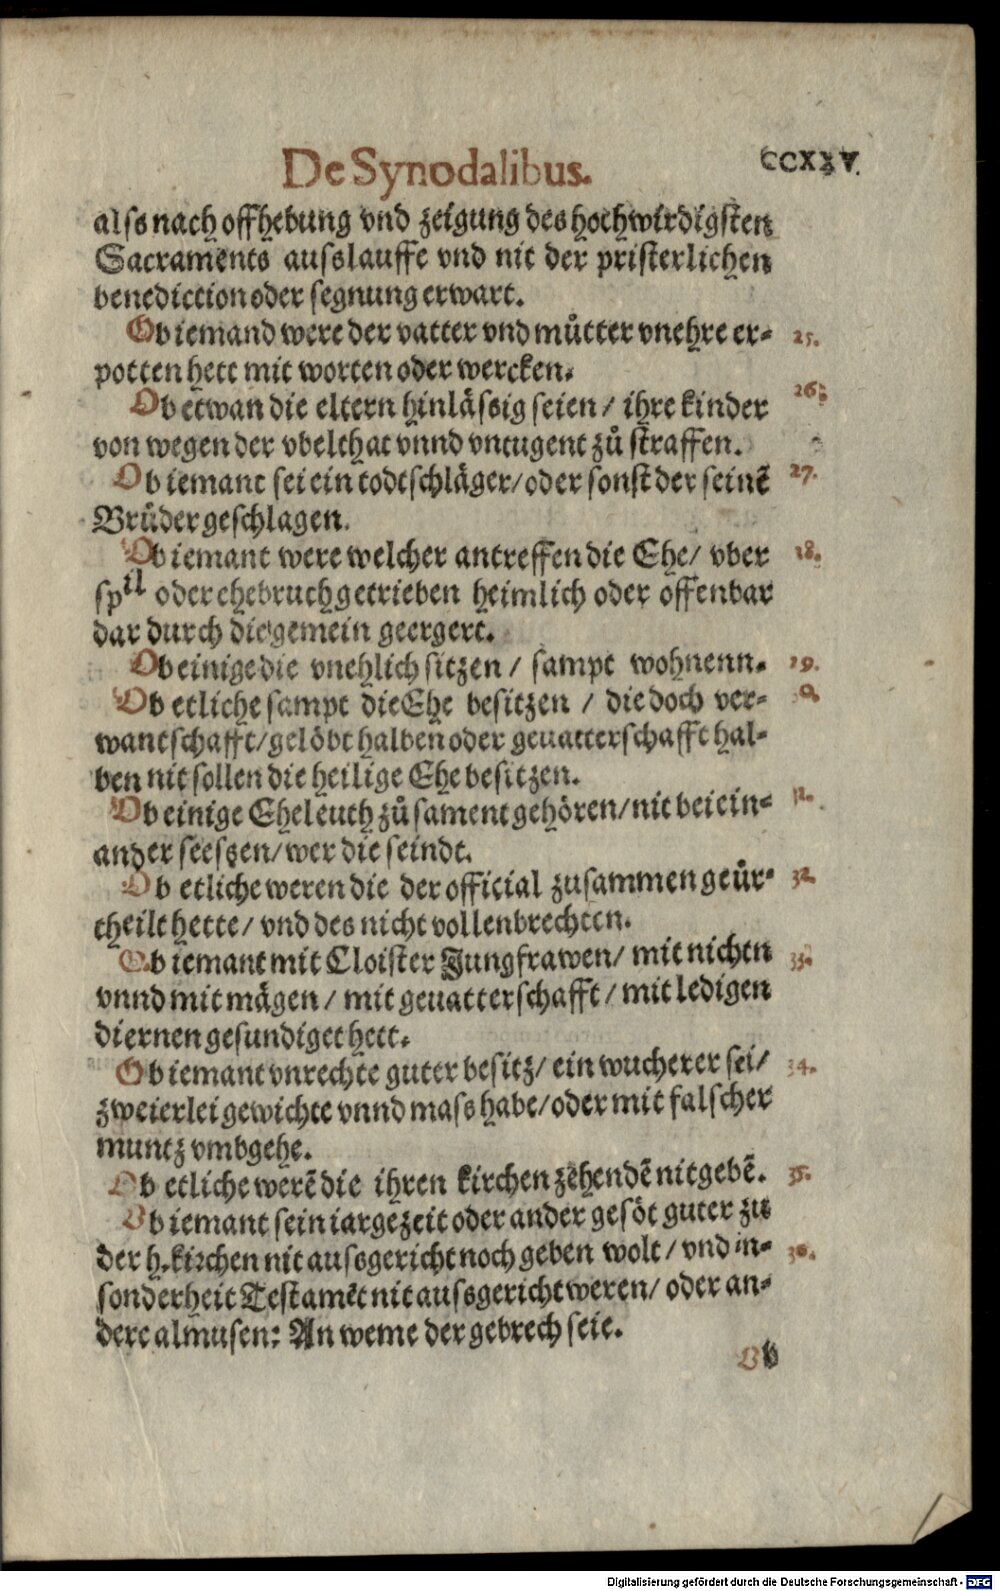 De Synodalibus.
CCXXV.
alss nach offhebung vnd zeigung des hochwirdigsten
Sacraments ausslauffe vnd nit der pristerlichen
benediction oder segnung erwart.
Ob iemand were der vatter vnd můtter vnehre er- 25.
potten hett mit worten oder wercken.
Ob etwan die eltern hinlässig seien / ihre kinder 26.
von wegen der vbelthat vnnd vntugent zů straffen.
Ob iemant sei ein todtschläger/oder sonst der seinē 27.
Brüder geschlagen.
Ob iemant were welcher antreffen die Ehe/ vber 28.
spil oder ehebruch getrieben heimlich oder offenbar
dar durch die gemein geergert.
Ob einige die vnehlich sitzen / sampt wohnenn. 29.
Ob etliche sampt die Ehe besitzen / die doch ver-
wantschafft/gelöbt halben oder geuatterschafft hal-
ben nit sollen die heilige Ehe besitzen.
Ob einige Eheleuth zů sament gehören/nit bei ein- 31.
ander seessen/wer die seindt.
Ob etliche weren die der official zusammen geür- 32.
theilt hette/ vnd des nicht vollenbrechten.
Ob iemant mit Cloister Jungfrawen/ mit nichtn 33.
vnnd mit mägen / mit geuatterschafft / mit ledigen
diernen gesundiget hett.
Ob iemant vnrechte guter besitz/ ein wucherer sei/ 34.
zweierlei gewichte vnnd mass habe/oder mit falscher
muntz vmbgehe.
Ob etliche werē die ihren kirchen zehendē nit gebē. 35.
Ob iemant sein iargezeit oder ander gesöt guter zu
der h. kirchen nit aussgericht noch geben wolt / vnd in- 36.
sonderheit Testamēt nit aussgericht weren/ oder an-
dere almusen: An weme der gebrech seie.
Ob
Digitalisierung gefördert durch die Deutsche Forschungsgemeinschaft - DFG